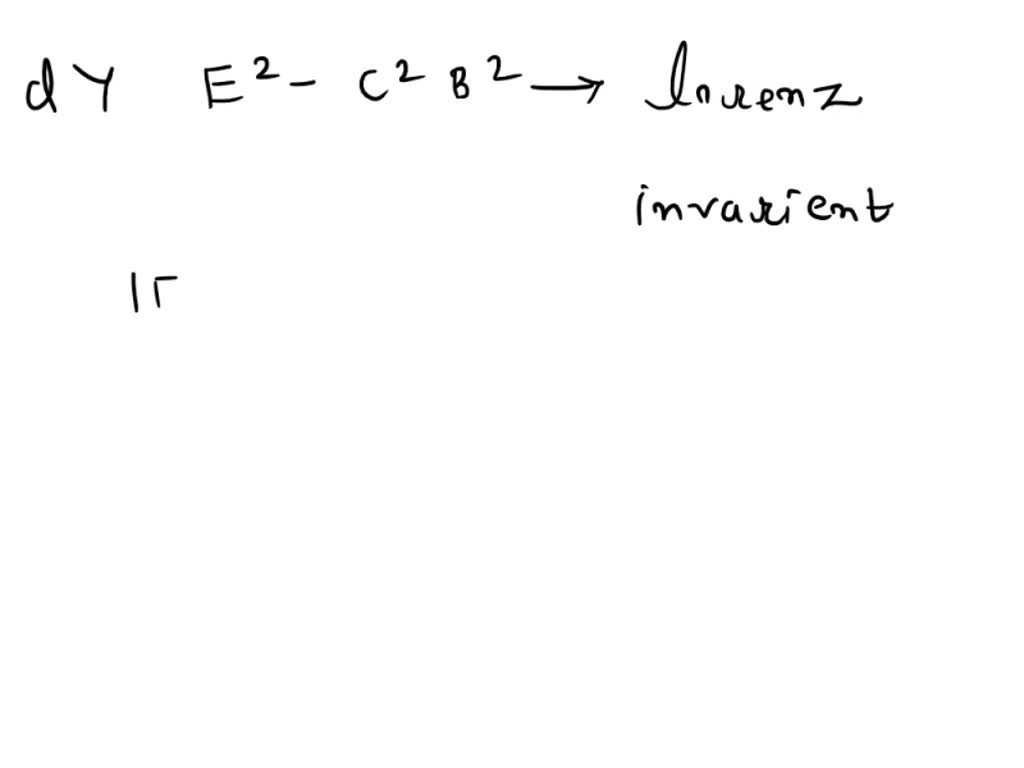 dY E² - C² B² → lorenz
invarient
IF